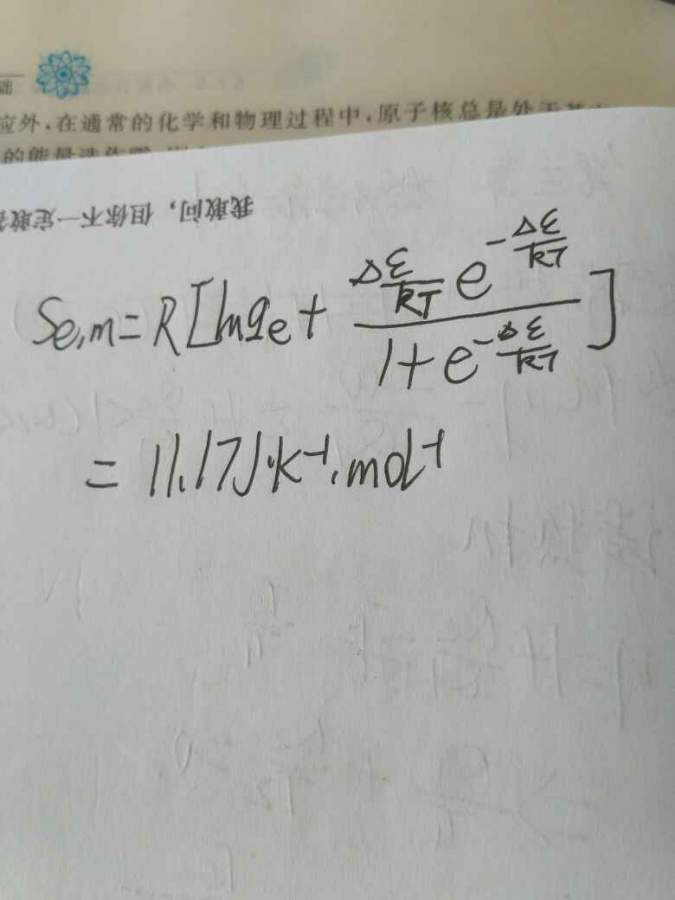 础
应外,在通常的化学和物理过程中,原子核总是处于基
的能量选作零
我敢问，但你不一定敢答
Se,m=R[lnqe+ \frac{\frac{Δε}{kT}e^{-\frac{Δε}{kT}}}{1+e^{-\frac{Δε}{kT}}}]
=11.17J·K⁻¹·mol⁻¹